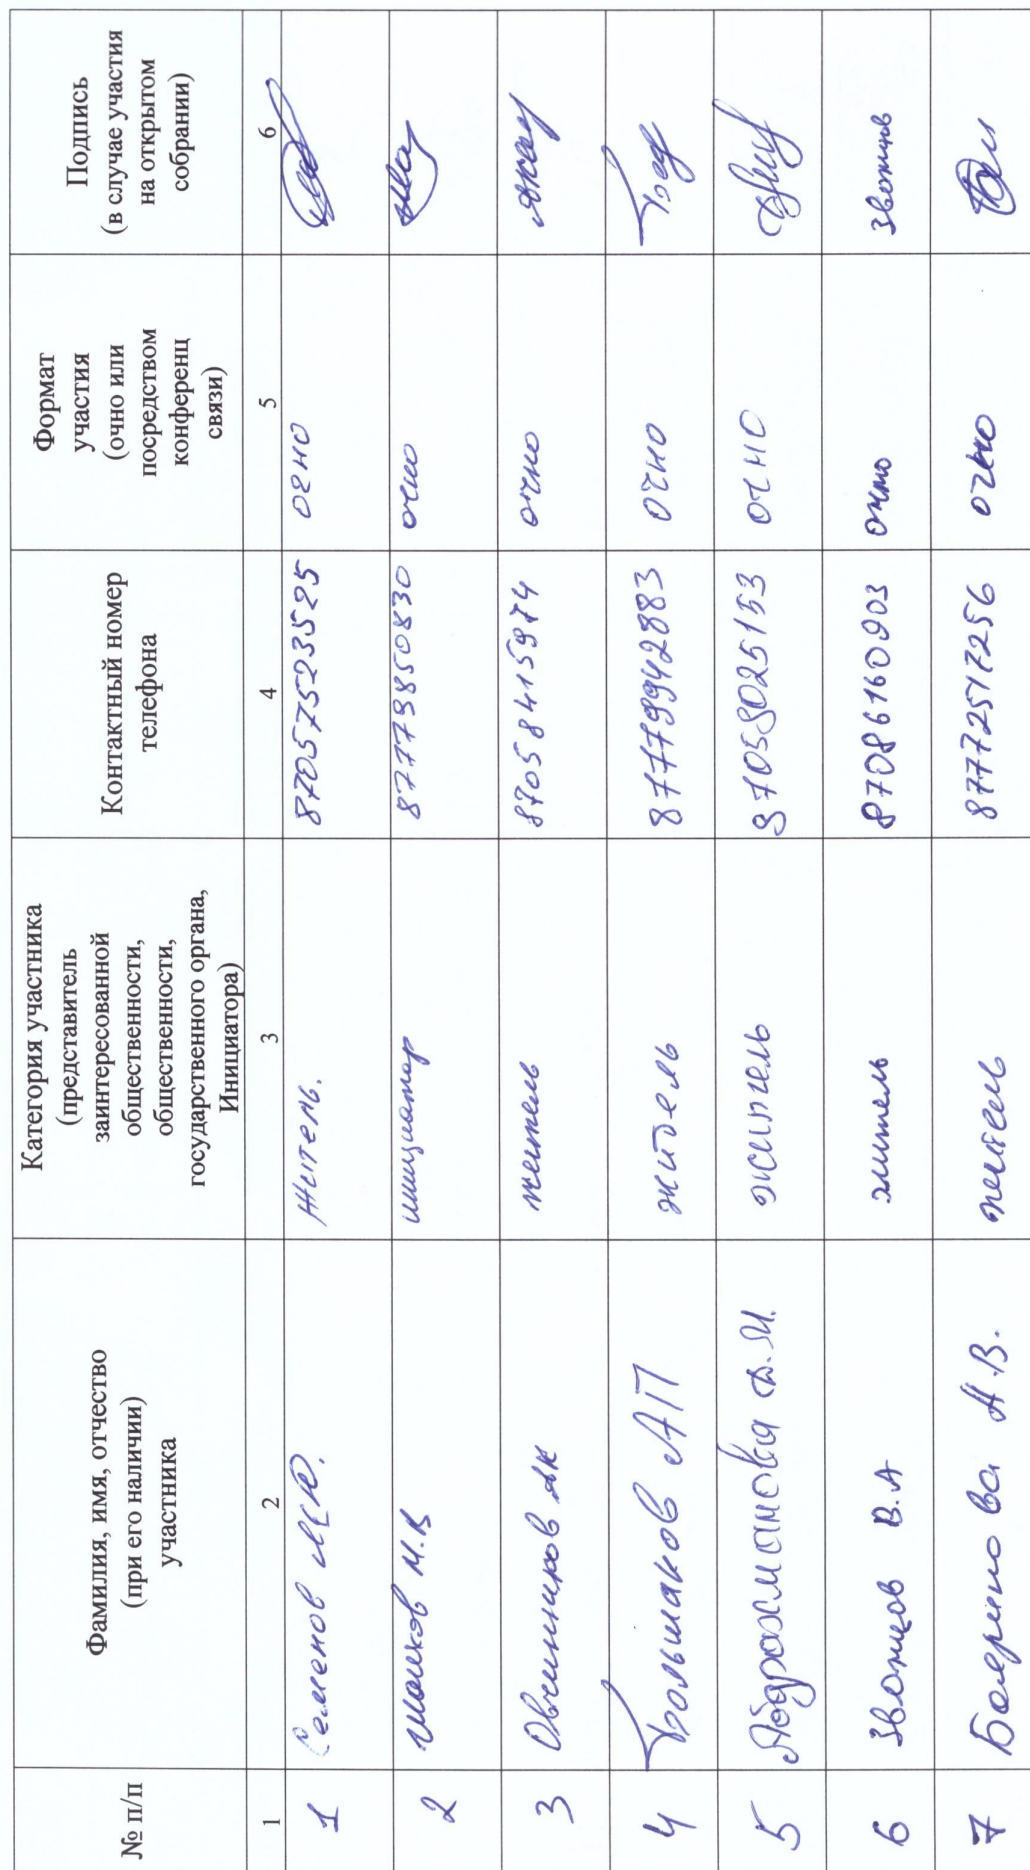 № п/п
Фамилия, имя, отчество
(при его наличии)
участника
Категория участника
(представитель
заинтересованной
общественности,
общественности,
государственного органа,
Инициатора)
Контактный номер
телефона
Формат
участия
(очно или
посредством
конференц
связи)
Подпись
(в случае участия
на открытом
собрании)
1 2 3 4 5 6
1 Семенов М.Ю. Житель. 87057523525 очно
2 М.В инициатор 87779850830 очно
3 Овчинников АК житель 87058415974 очно
4 Большаков АП житель 87779942883 очно
5 Абдрахманова Д.И. житель 87059025153 очно
6 Звонцов В.А житель 87086160903 очно Звонцов
7 Бояринова Н.В. житель 87772517256 очно